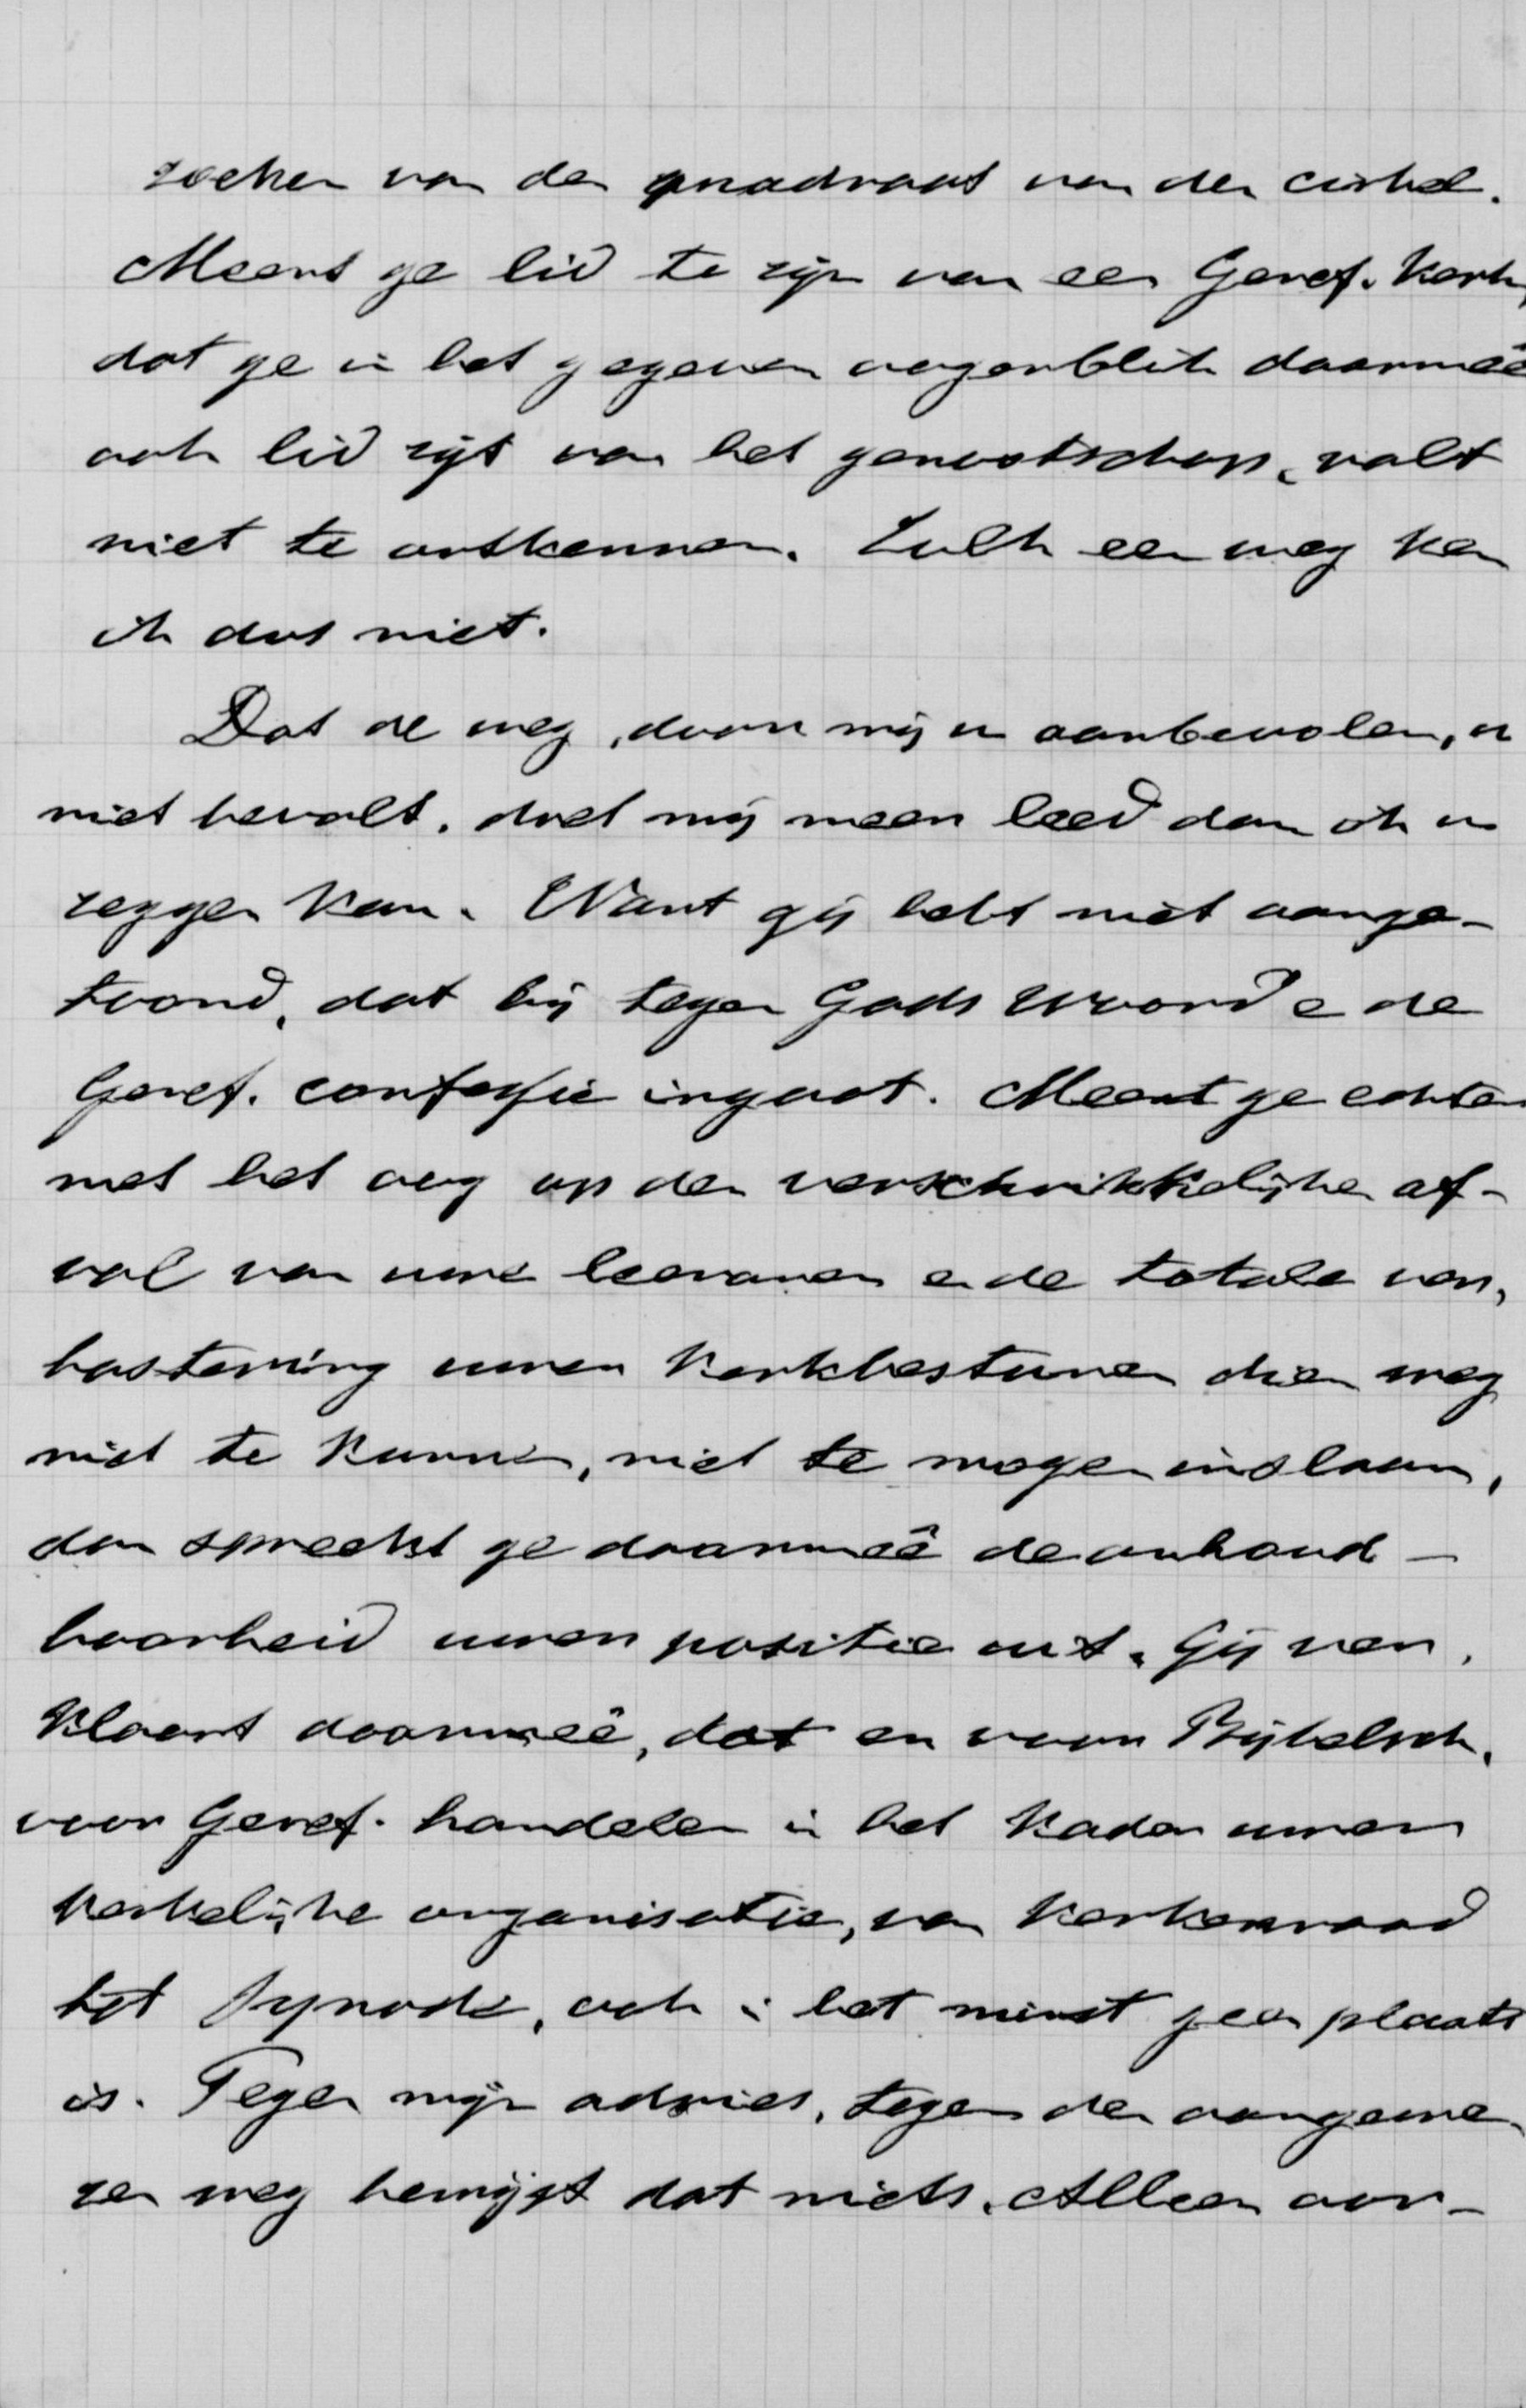 zoeken van den quadraat van den cirkel.
Meent ge lid te zijn van een Geref. Kerk,
dat ge in het gegeven oogenblik daarmeê
ook lid zijt van het genootschap, valt
niet te ontkennen. Zulk een weg ken
ik dus niet.
Dat de weg, door mij u aanbevolen, u
niet bevalt, doet mij meer leed dan ik u
zeggen kan. Want gij hebt niet aange-
toond, dat hij tegen Gods Woord en de
Geref. confessie ingaat. Meent ge echter
met het oog op den verschrikkelijken af-
val van uwe leeraren en de totale ver,
bastering uwer Kerkbesturen dien weg
niet te kunnen, niet te mogen inslaan,
dan spreekt ge daarmeê de onhoud-
baarheid uwer positie uit. Gij ver,
klaart daarmeê, dat er voor Bijbelsch,
voor Geref. handelen in het kader uwer
kerkelijke organisatie, van Kerkenraad
tot Synode, ook in het minst geen plaats
is. Tegen mijn advies, tegen den aangewe,
zen weg bewijst dat niets. Alleen oor-